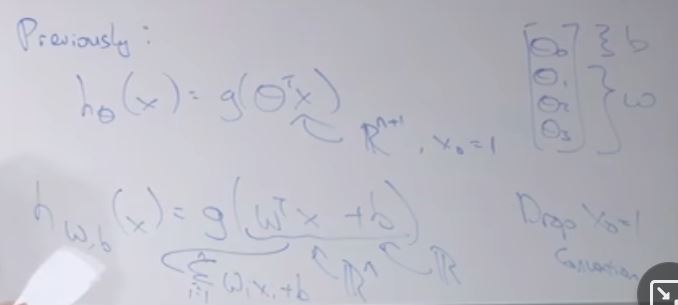 Previously:
h_θ(x) = g(θᵀx)
ℝⁿ⁺¹, x₀ = 1
[θ₀ θ₁ θ₂ θ₃]
} b
} w
h_w,b(x) = g(wᵀx + b)
Σ i=1 n wᵢxᵢ + b
ℝⁿ
ℝ
Drop x₀=1
Convention